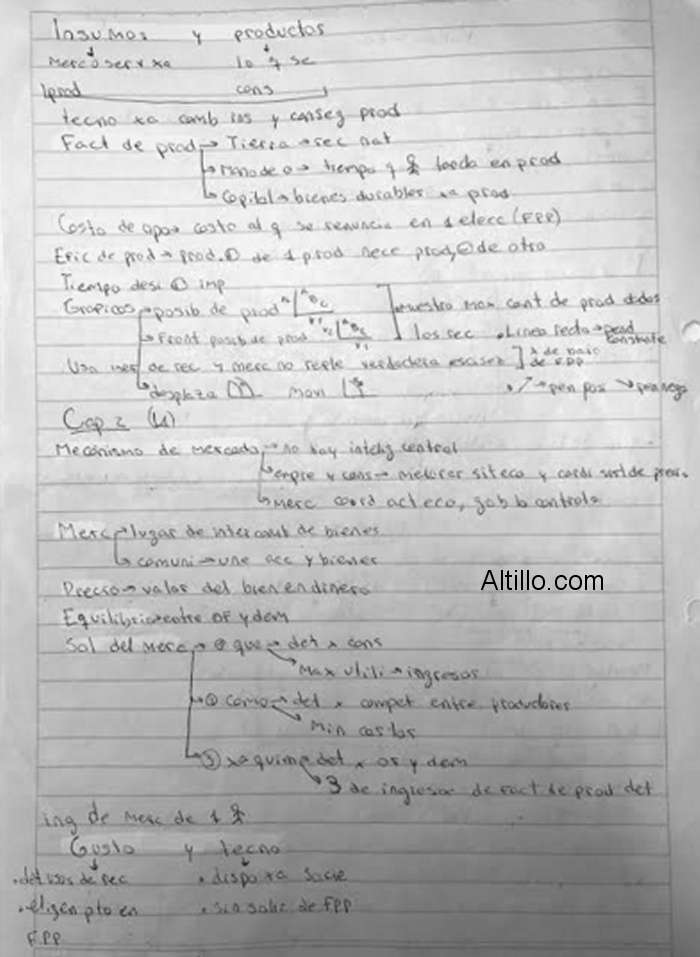 Insumos y productos
merc o ser xa lo q se
prod cons
tecno xa comb ins y conseg prod
Fact de prod → Tierra → rec nat
→ Mano de o → tiempo q tarda en prod
→ Capital → bienes durables xa prod
Costo de opo → costo al q se renuncia en 1 elecc (FPP)
Efic de prod → prod. de 1 prod nece prod, de otro
Tiempo desc imp
Graficos → posib de prod
muestra max cant de prod dados
→ Front posib de prod
los rec • Linea recta → pend constante
Usa de rec y merc no refle verdadera escasez x de bajo de FPP
→ desplaza movi • pen pos pen nega
Cap 2 (U)
Mecanismo de mercado → no hay intelig central
→ empre y cons → sit eco y
→ merc coord act eco, gob lo controla
Merc → lugar de intercamb de bienes
→ comuni → une acc y bienes
Precio → valor del bien en dinero
Equilibrio → entre of y dem
Sol del merc → ① que → det x cons
Max utili → ingresos
→ ② como → det x compet entre productores
Min costos
→ ③ xa quien → det x of y dem
3 de ingresos de fact de prod det
ing de merc de 1
Gusto y tecno
• det usos de rec • dispo xa socie
• eligen pto en • sin salir de FPP
FPP
Altillo.com